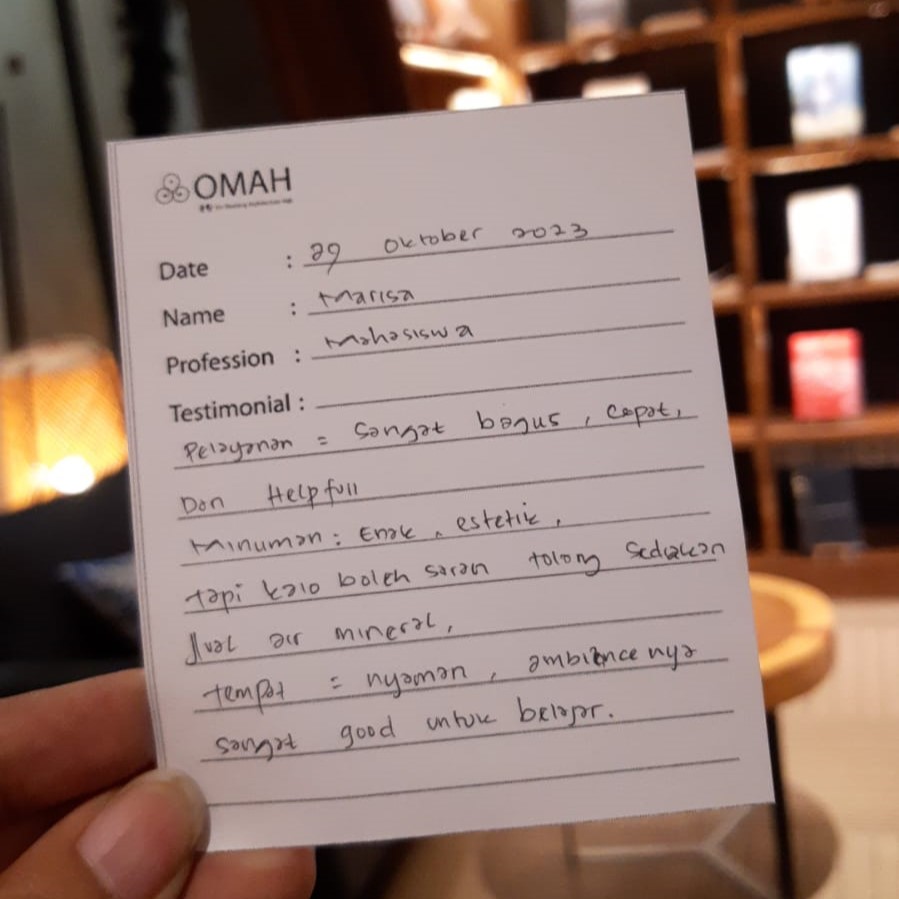 OMAH
Date : 29 Oktober 2023
Name : Marisa
Profession : Mahasiswa
Testimonial :
Pelayanan = Sangat bagus, Cepat,
Dan Helpfull
Minuman : Enak, estetik,
tapi kalo boleh saran tolong sediakan
Jual air mineral,
tempat = nyaman, ambience nya
sangat good untuk belajar.